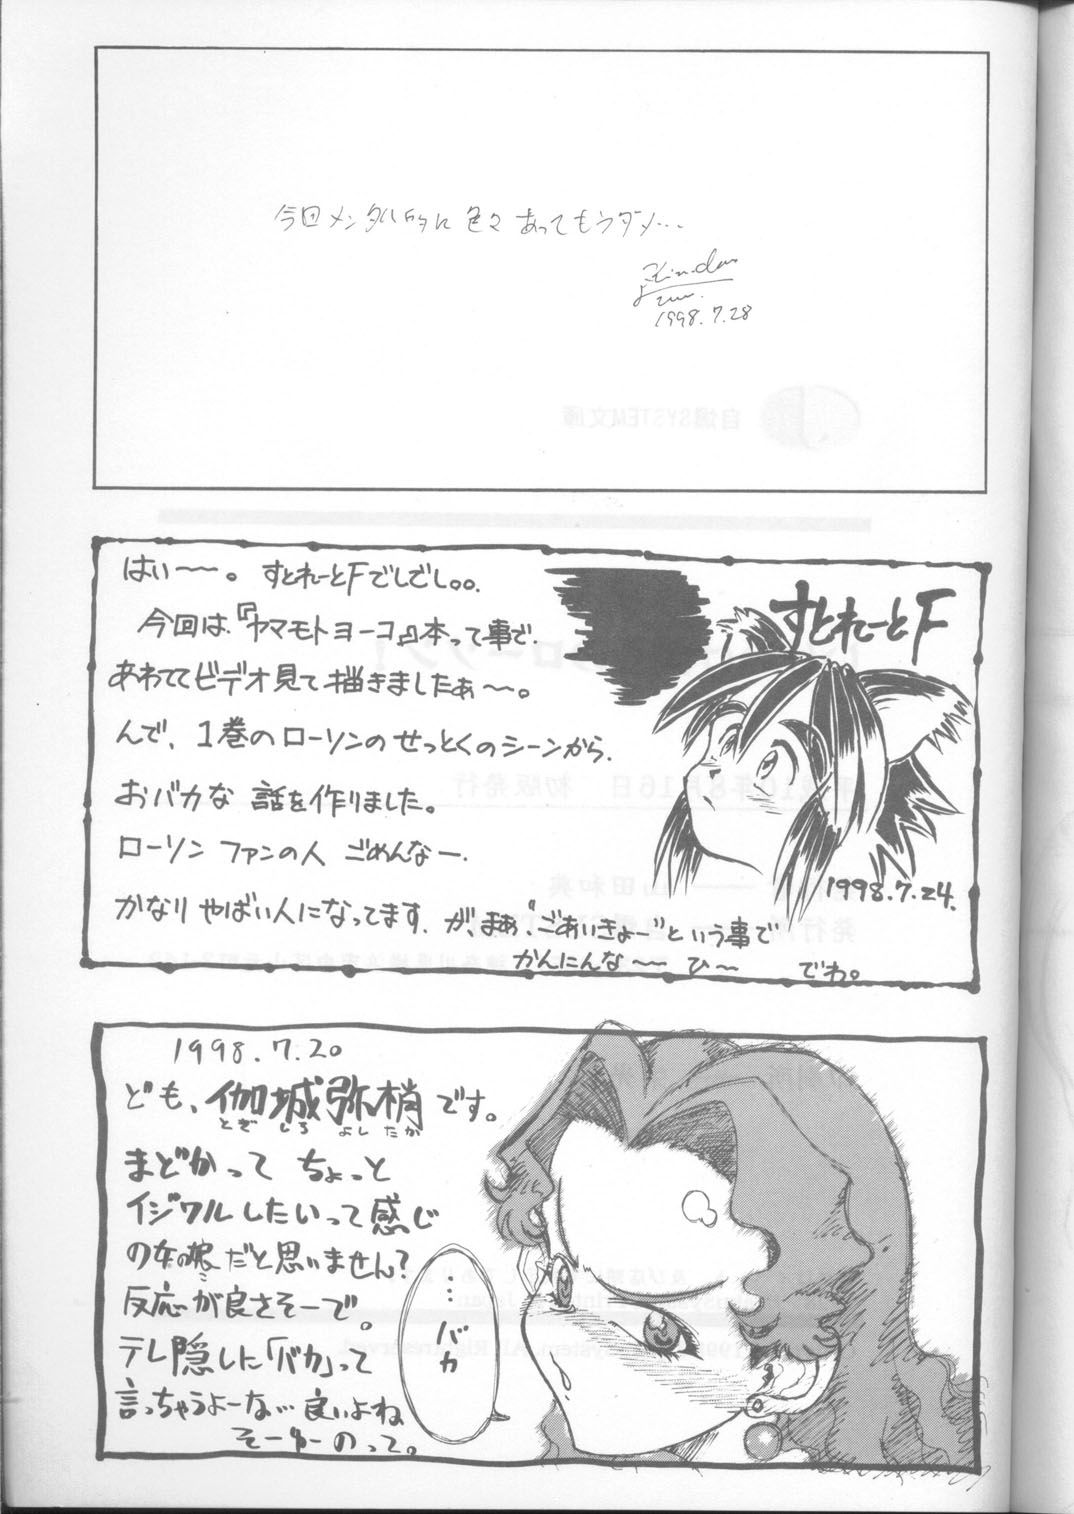 今回メンタル的に色々あってもうダメ…
1998.7.28
はい〜。すとれーとFでしでし。。
すとれーとF
今回は『ヤマモトヨーコ』本って事で、
あわててビデオ見て描きましたぁ〜。
んで、1巻のローソンのせっとくのシーンから、
おバカな話を作りました。
ローソンファンの人ごめんなー。
かなりやばい人になってます。が、まあ、“ごあいきょー”という事で
かんにんな〜〜 ひ〜 でわ。
1998.7.24.
1998.7.20
ども、伽城弥梢です。
とぎしろよしたか
まどかって ちょっと
イジワルしたいって感じ
の女の娘だと思いません?
反応が良さそーで。
テレ隠した「バカ」って
言っちゃうよーな… 良いよね
そーゆーのって。
…バカ